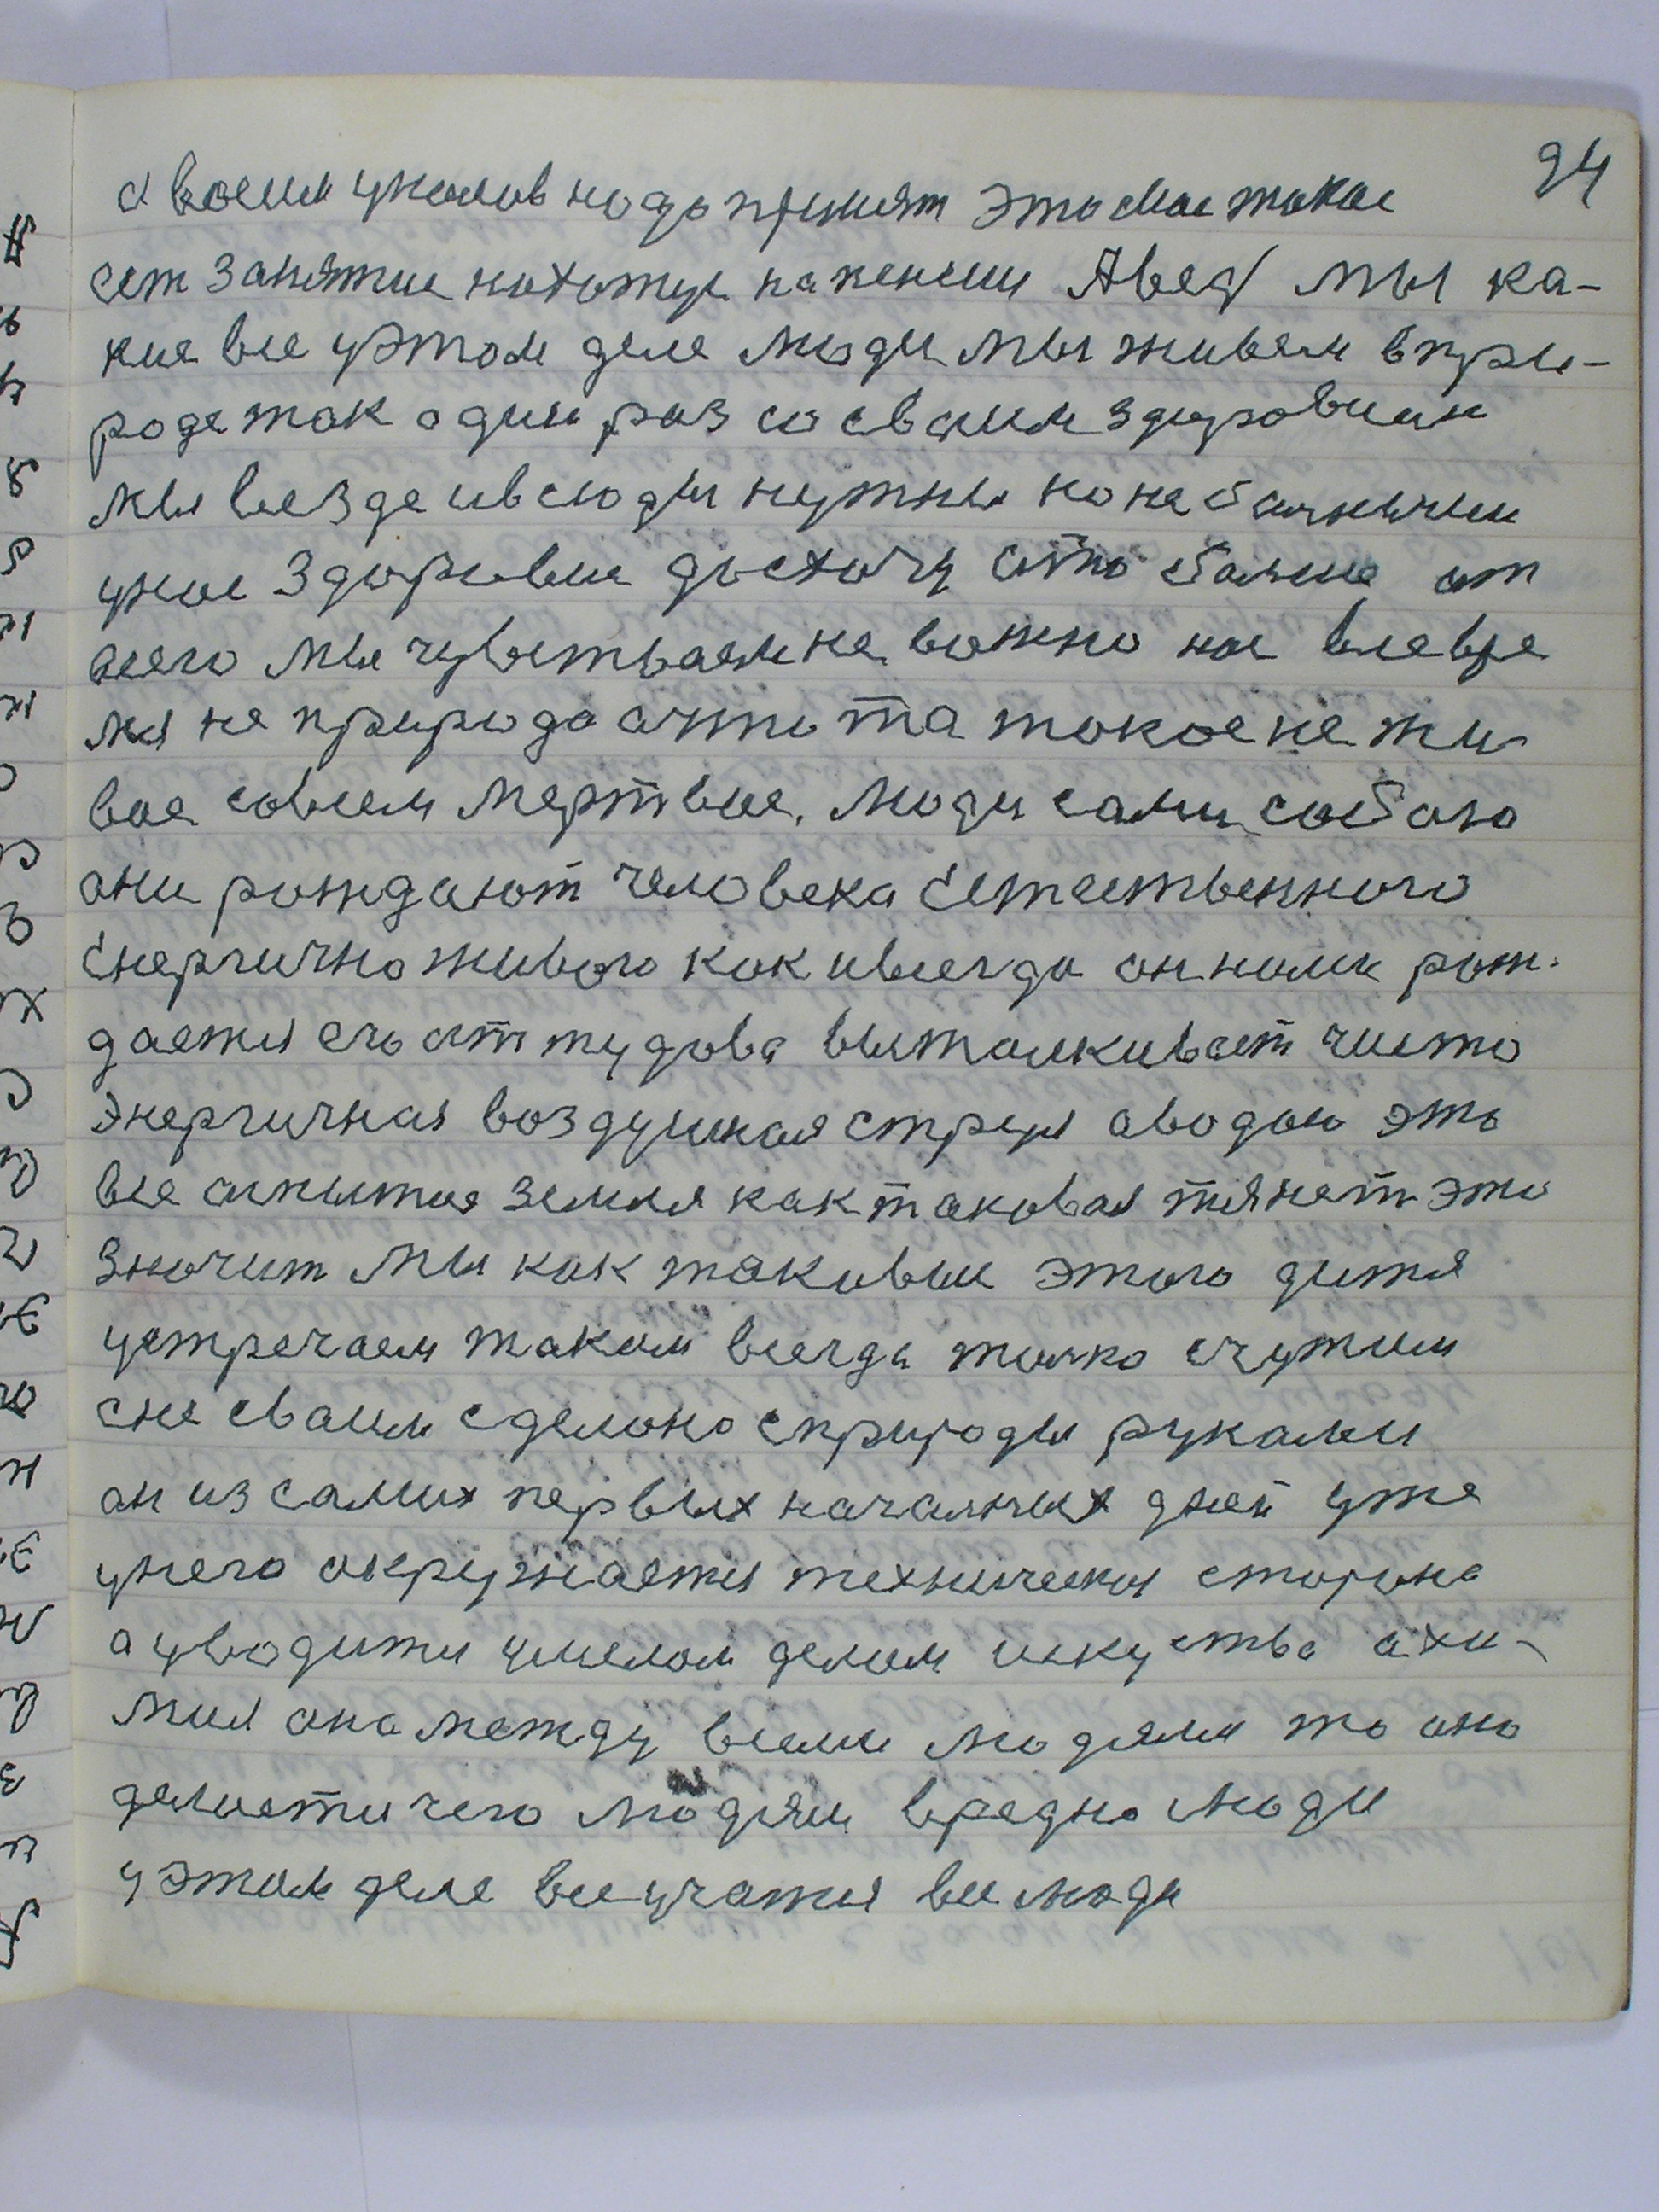 94
а восим уколов надо принят это мае такое
ест занятие нахожус на пенсии Авед мы ка-
кие все уэтом деле люди мы живем в при-
роде так один раз со своим здоровием
мы везде ивсюды нужны но не болничии
унас здоровие достачу ото болше от
всего мы чувствоем не важно нас все вре
мя не природа очто та такое не жи
вое совсем мертвое. Люди сами собою
они рождают человека Естественного
Енергично живого как ивсегда он нами рож-
дается его от тудова выталкивает чисто
энергичная воздушная струя аводою это
все земля как таковая тянет это
значит мы как таковыи этого дитя
устречаем таким всегда толко счужим
сне своим сделано сприроды руками
он из самих первых началных дней уже
унего окружается техническая сторона
а уводити умелом делом искуства а хи-
мия она между всеми людями то оно
делаети чего людям вредно люди
уэтом деле все учатся все люди